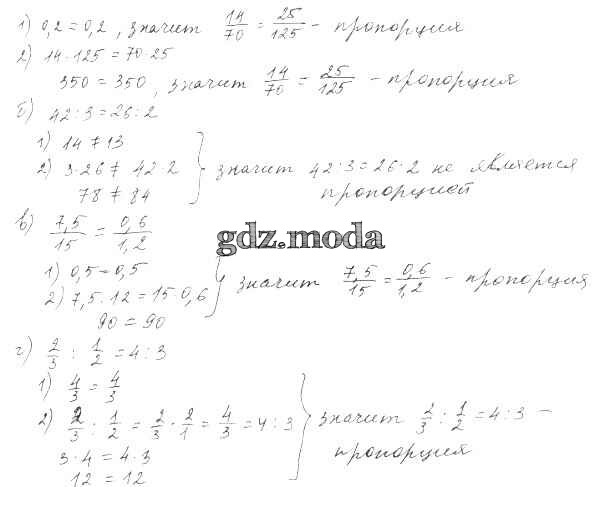 1) 0,2 = 0,2, значит 14/70 = 25/125 - пропорция
2) 14 · 125 = 70 · 25
350 = 350, значит 14/70 = 25/125 - пропорция
б) 42 : 3 = 26 : 2
1) 14 ≠ 13
2) 3 · 26 ≠ 42 · 2
78 ≠ 84
} значит 42 : 3 = 26 : 2 не является
пропорцией
в) 7,5/15 = 0,6/1,2
gdz.moda
1) 0,5 = 0,5
2) 7,5 · 12 = 15 · 0,6
90 = 90
} значит 7,5/15 = 0,6/1,2 - пропорция
г) 2/3 : 1/2 = 4 : 3
1) 4/3 = 4/3
2) 2/3 : 1/2 = 2/3 · 2/1 = 4/3 = 4 : 3
3 · 4 = 4 · 3
12 = 12
} значит 2/3 : 1/2 = 4 : 3 -
пропорция